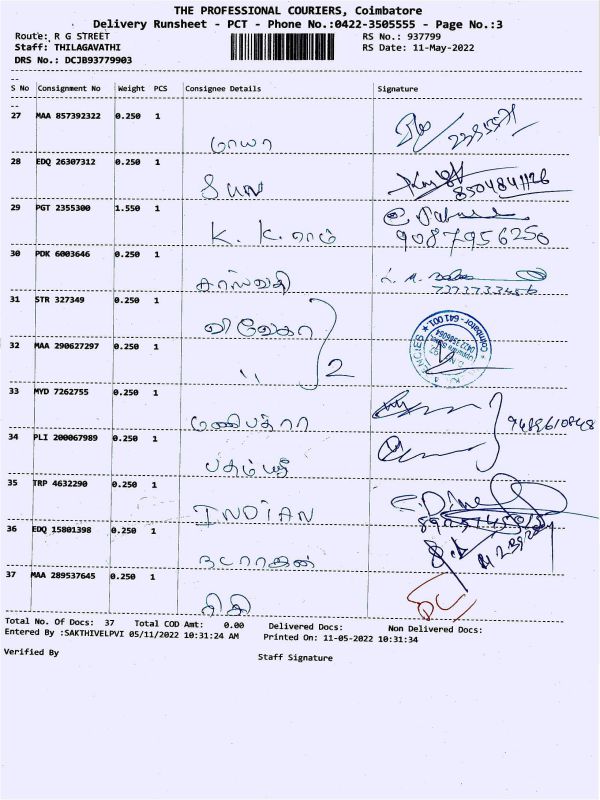 THE PROFESSIONAL COURIERS, Coimbatore
Delivery Runsheet - PCT - Phone No.:0422-3505555 - Page No.:3
Route: R G STREET RS No.: 937799
Staff: THILAGAVATHI RS Date: 11-May-2022
DRS No.: DCJB93779903
S No Consignment No Weight PCS Consignee Details Signature
27 MAA 857392322 0.250 1
மாயா
28 EDQ 26307312 0.250 1
SUN 8504841126
29 PGT 2355300 1.550 1
K. K. ராம் 9087956250
30 PDK 6003646 0.250 1
சரஸ்வதி
31 STR 327349 0.250 1
விவேகா
32 MAA 290627297 0.250 1
,, 2
33 MYD 7262755 1
மணிபத்ரா
34 PLI 200067989 0.250 1
பதம்ஸ்ரீ
35 TRP 4632290 0.250 1
INDIAN
36 EDQ 15801398 0.250 1
நடராஜன்
37 MAA 289537645 0.250 1
Total No. Of Docs: 37 Total COD Amt: 0.00 Delivered Docs: Non Delivered Docs:
Entered By :SAKTHIVELPVI 05/11/2022 10:31:24 AM Printed On: 11-05-2022 10:31:34
Verified By Staff Signature